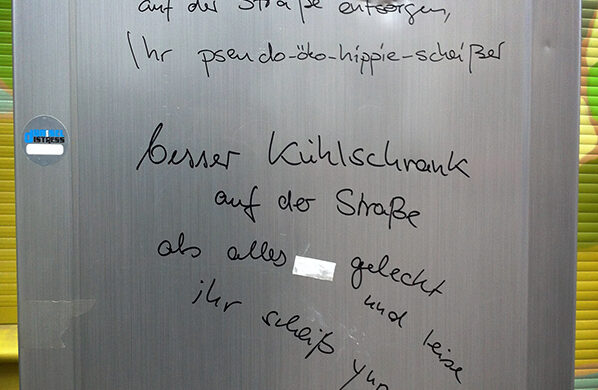 auf der Straße entsorgen,
Ihr pseudo-öko-hippie-scheißer
DISTRESS
besser Kühlschrank
auf der Straße
als alles geleckt
und leise
ihr scheiß